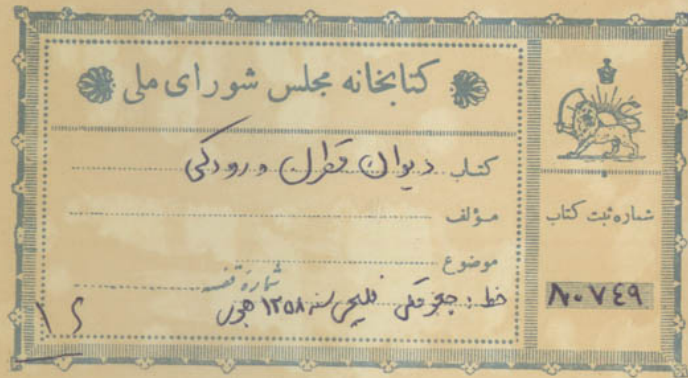 کتابخانه مجلس شورای ملی
کتاب دیوان قطران و رودکی
مؤلف
موضوع
شماره قفسه
خط: جعفر سنه ۱۲۵۸
شماره ثبت کتاب
۸۰۷۴۹